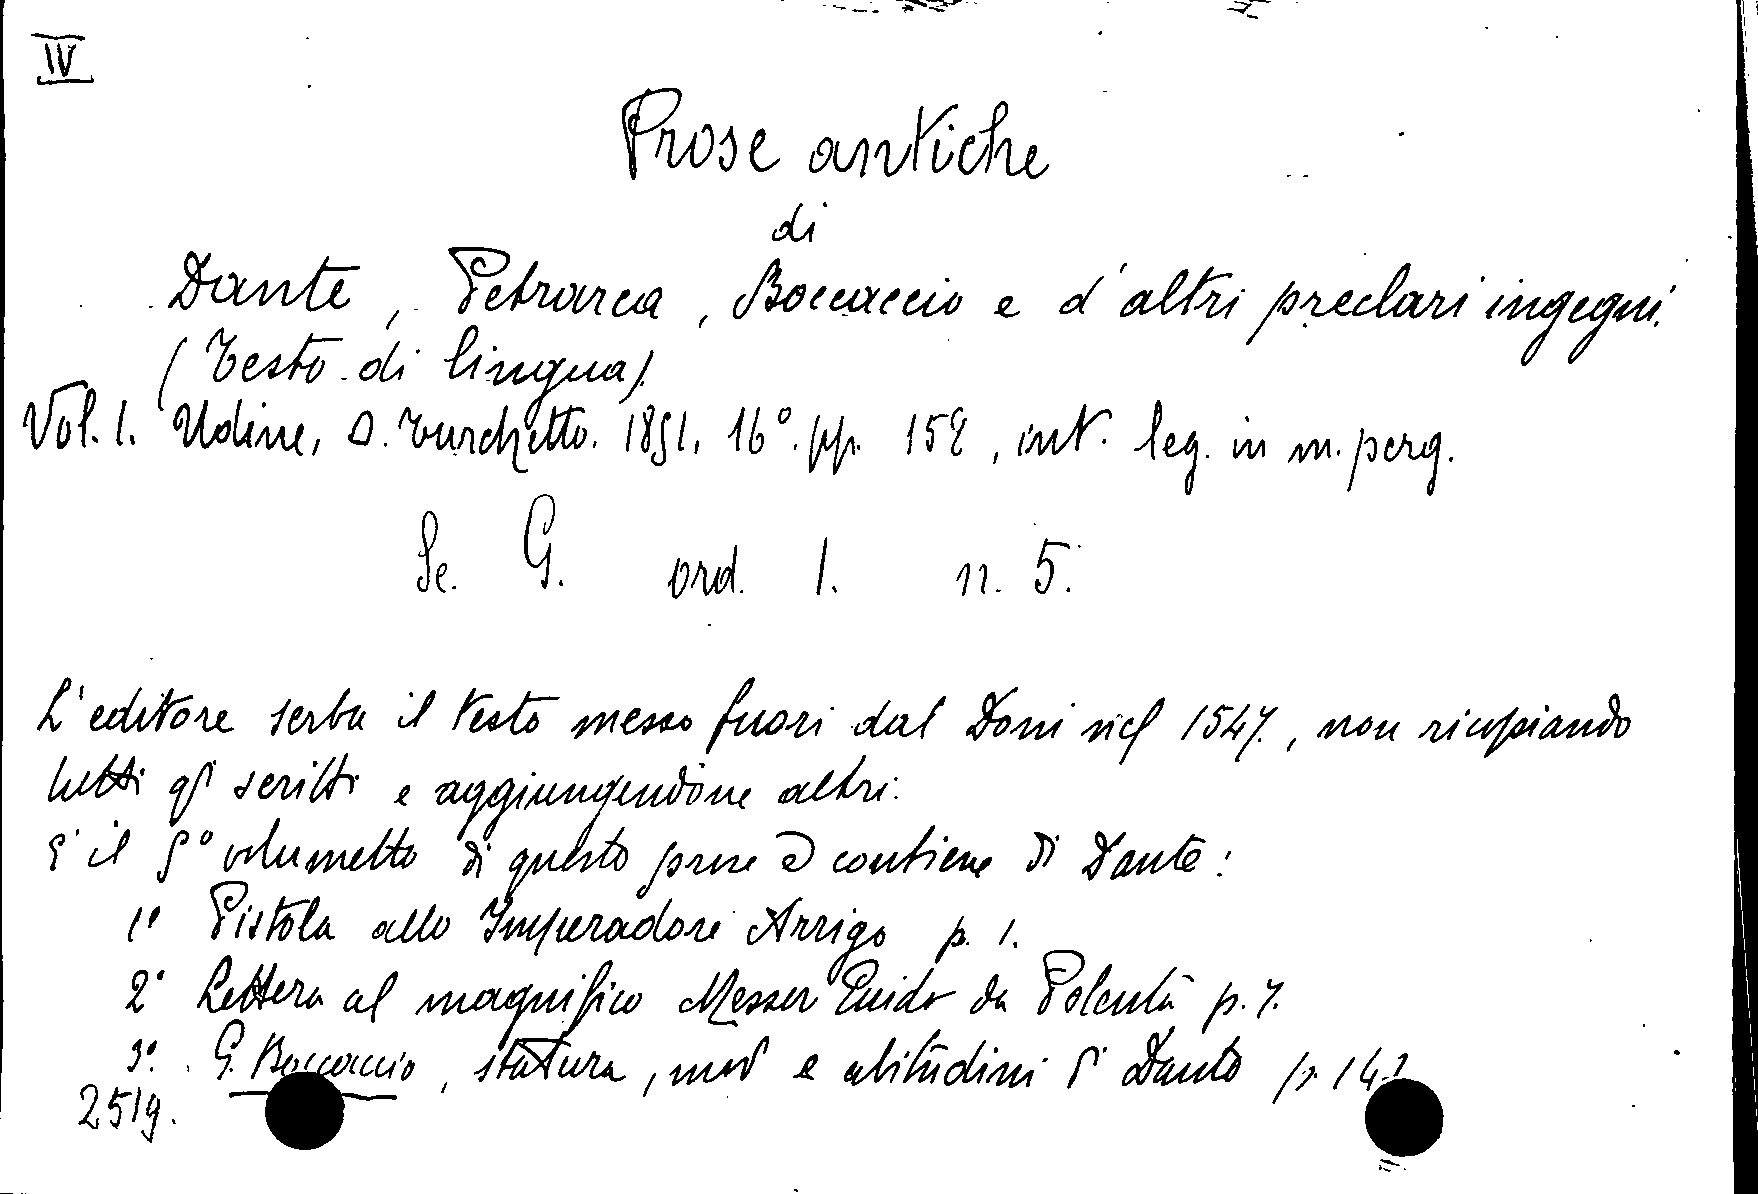 IV
Prose antiche
di
Dante, Petrarca, Boccaccio e d'altri preclari ingegni.
(Testo di lingua).
Vol. 1. Udine, O. Turchetto. 1851. 16°. pp. 152, int. leg. in m. perg.
Se. G. ord. 1. n. 5.
L'editore serba il testo messo fuori dal Doni nel 1547, non ricopiando
tutti gl' scritti e aggiungendone altri.
E' il volumetto di questo prose e contiene di Dante:
1° Pistola allo Imperadore Arrigo p. 1.
2° Lettera al magnifico Messer Guido da Polenta p. 7.
3°. G. Boccaccio, statura, modi e abitudini di Dante p. 14
2519.